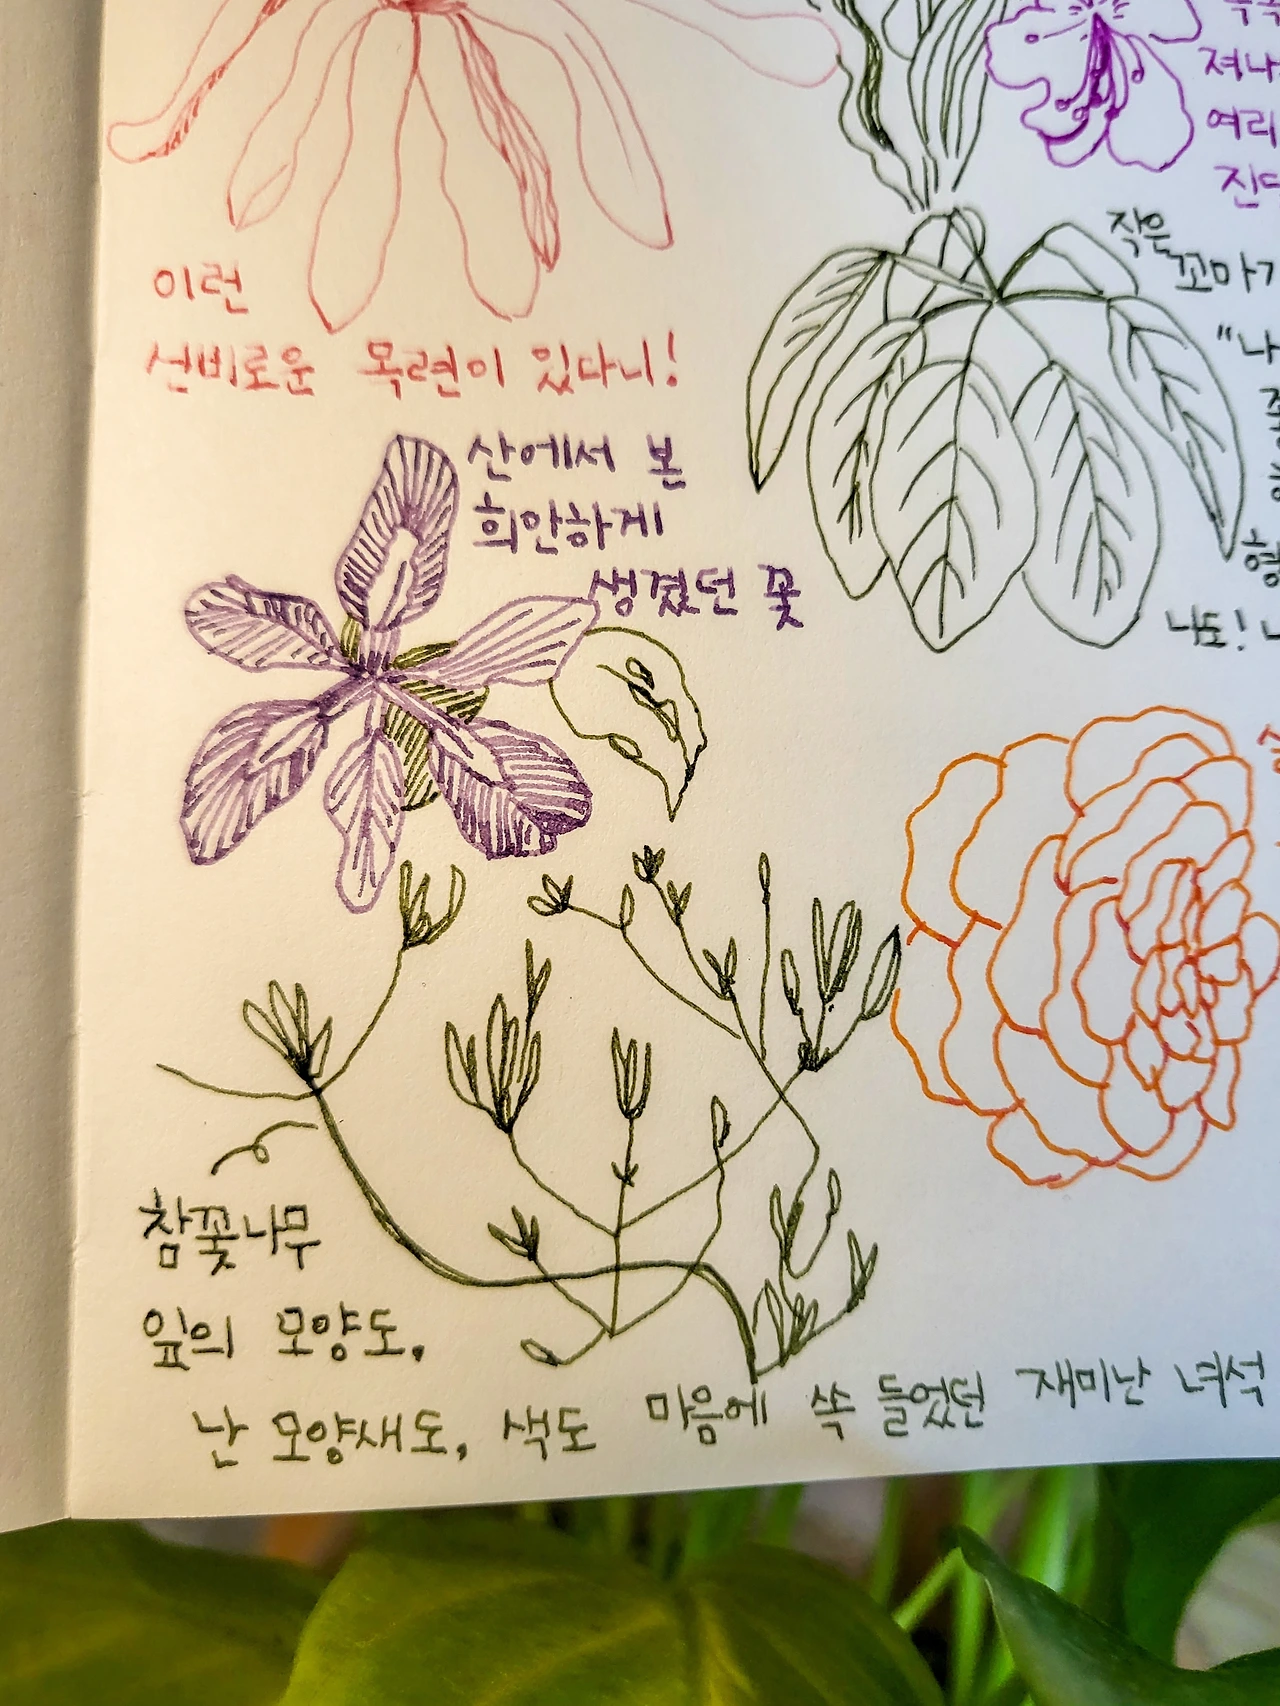 이런
선비로운 목련이 있다니!
산에서 본
희안하게
생겼던 꽃
져나
여리
작은
꼬마
"나
나도!
참꽃나무
잎의 모양도,
난 모양새도, 색도 마음에 쏙 들었던 재미난 녀석